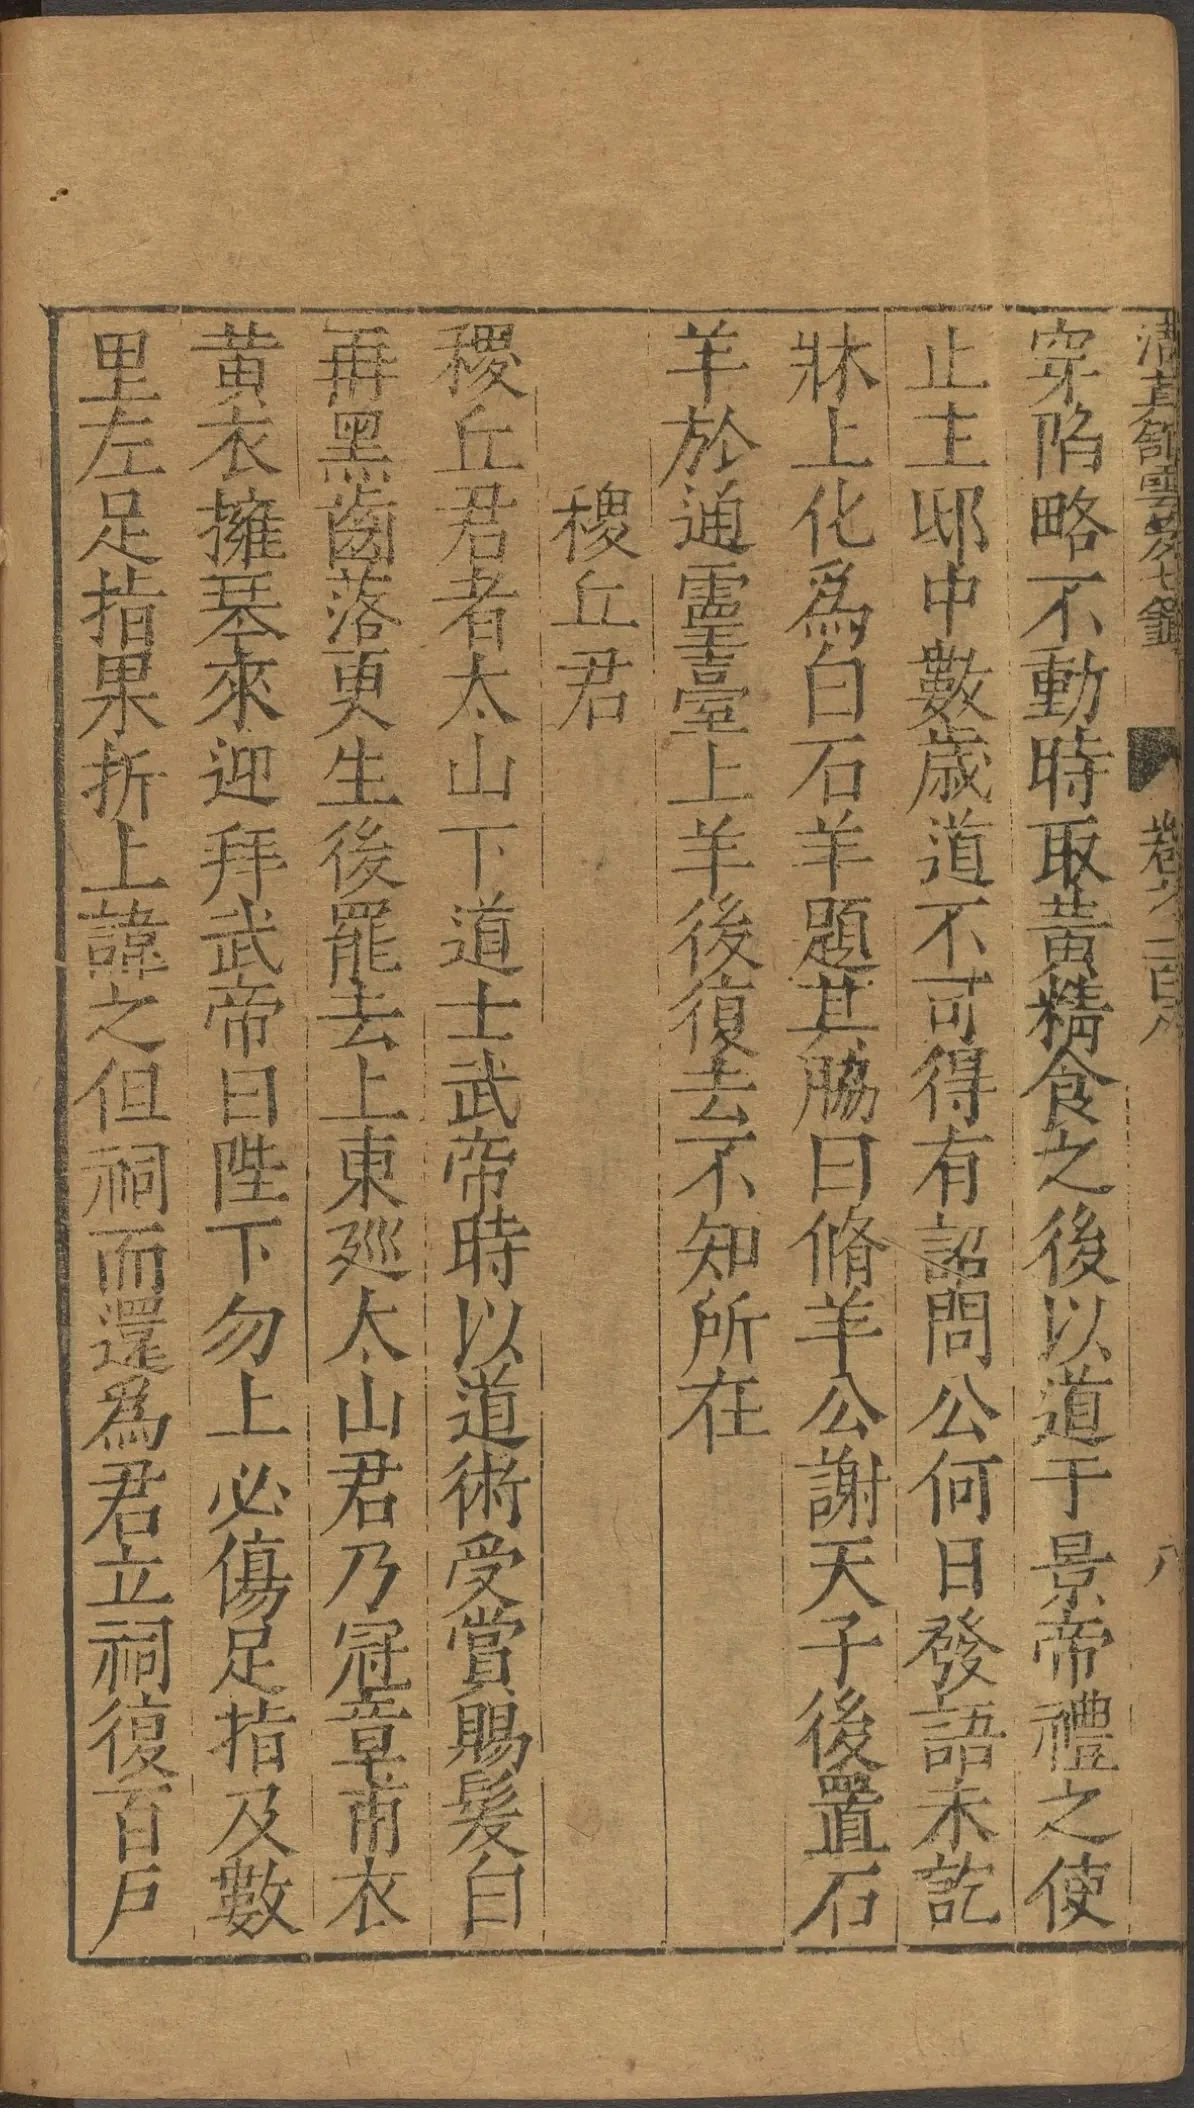 清真館雲笈七籤 卷之一百八 八
穿陷略不動時取黃精食之後以道于景帝禮之使
止主邸中數歲道不可得有詔問公何日發語未訖
牀上化爲白石羊題其脇曰脩羊公謝天子後置石
羊於通靈臺上羊後復去不知所在
稷丘君
稷丘君者太山下道士武帝時以道術受賞賜髮白
再黑齒落更生後罷去上東廵太山君乃冠章甫衣
黃衣擁琴來迎拜武帝曰陛下勿上必傷足指及數
里左足指果折上諱之但祠而還爲君立祠復百戶